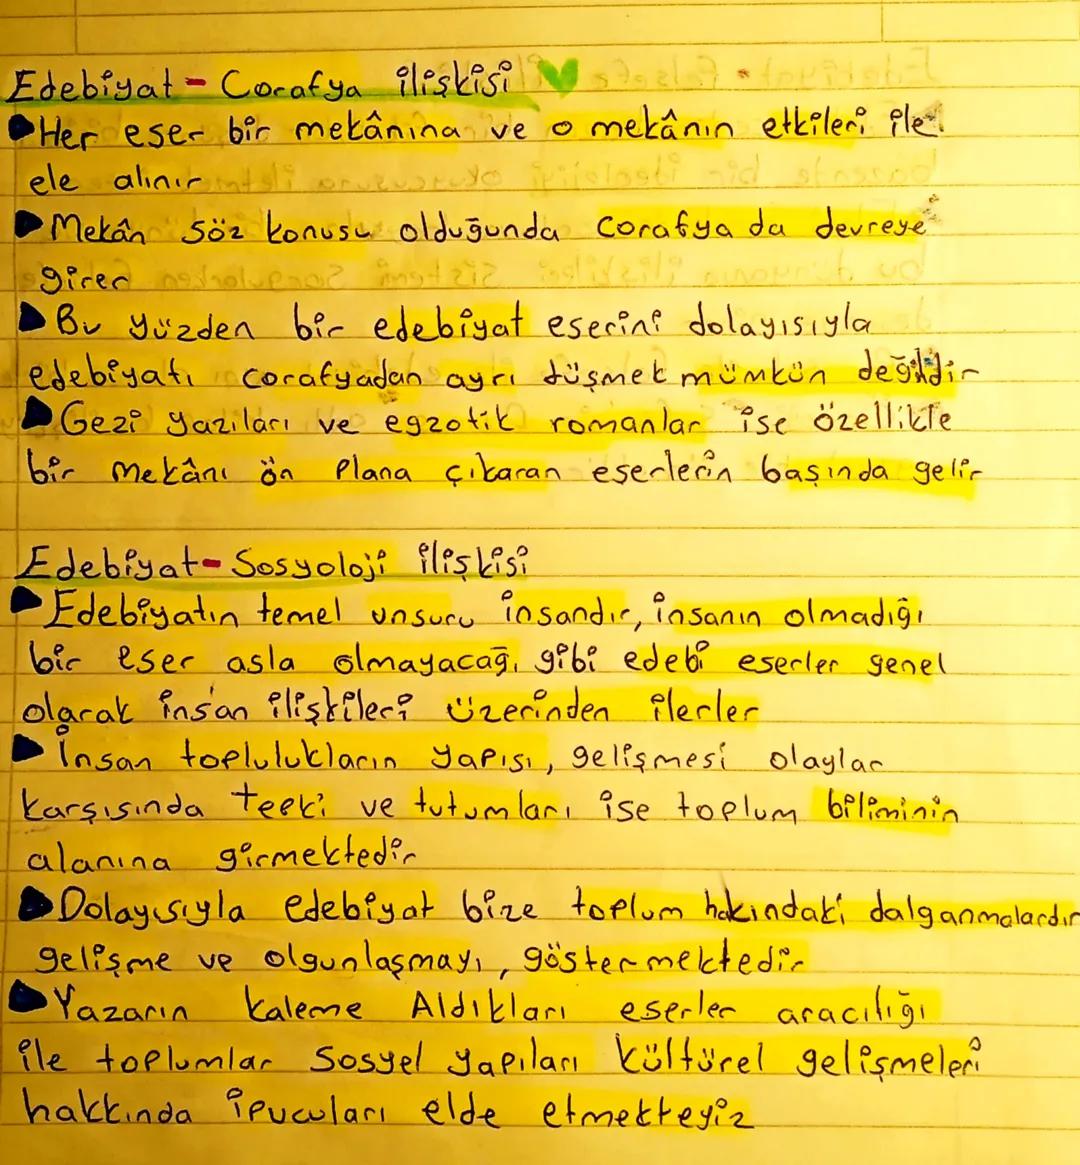 Edebiyat - Corafya ilişkisi
Her eser bir mekânına ve o mekânın etkileri ile
ele alınır
Mekân söz konusu olduğunda corafya da devreye
girer
Bu yüzden bir edebiyat eserini dolayısıyla
edebiyatı corafyadan ayrı düşmek mümkün değildir
Gezi yazıları ve egzotik romanlar ise özellikle
bir mekânı ön plana çıkaran eserlerin başında gelir
Edebiyat - Sosyoloji ilişkisi
Edebiyatın temel unsuru insandır, insanın olmadığı
bir eser asla olmayacağı gibi edebi eserler genel
olarak insan ilişkileri üzerinden ilerler
İnsan toplulukların yapısı, gelişmesi olaylar
karşısında teeki ve tutumları ise toplum biliminin
alanına girmektedir
Dolayısıyla edebiyat bize toplum hakındaki dalganmalardır
gelişme ve olgunlaşmayı, göstermektedir
Yazarın kaleme Aldıkları eserler aracılığı
ile toplumlar Sosyel yapıları kültürel gelişmeleri
hakkında ipucuları elde etmekteyiz